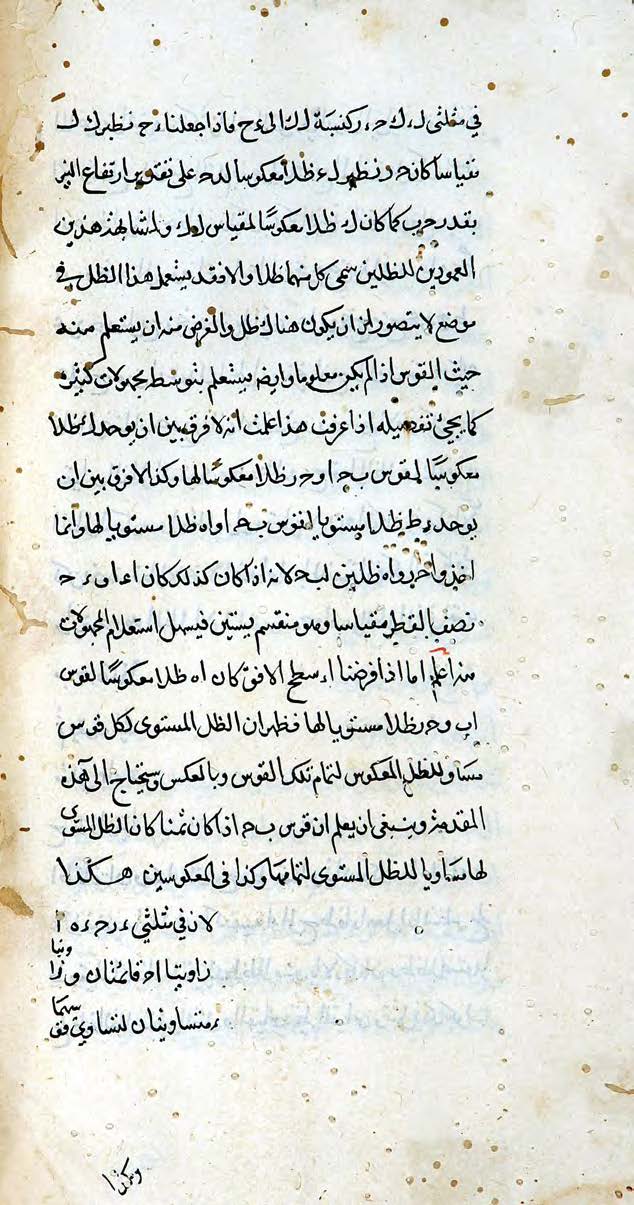 في مثلثي لء ك ح ر كنسبة ل ك الى ء ح فاذا جعلنا ء ح نظير ك ل
مقياسا كان ح ر نظير ل ء ظلا معكوسا لد ح على تقدير ارتفاع النير
بقدر ح ب كما كان ل ظلا معكوسا لمقياس ل ك ولمشابهة هذين
العمودين للظلين سمي كل منهما ظلا والا فقد يستعمل هذا الظل في
موضع لا يتصور ان يكون هناك ظل والغرض منه ان يستعلم منه
حيث القوس اذا لم يكن معلوما وايضا يستعلم بتوسطه مجهولات كثيرة
كما يجيئ تفصيله اذا عرفت هذا علمت انه لا فرق بين ان يوخذ ك ظلا
معكوسا لقوس ب ح او ح ر ظلا معكوسا لها وكذا لا فرق بين ان
يوخذ ء ط ظلا مستويا لقوس ب ح او اه ظلا مستويا لها وانما
اخذوا ح ر و اه ظلين لب ح لانه اذا كان كذلك كان ا ء او ء ح
نصف القطر مقياسا وهو منقسم بستين فيسهل استعلام المجهولات
منه اعلم اما اذا فرضنا ا ء سطح الافق كان اه ظلا معكوسا لقوس
اب و ح ر ظلا مستويا لها فظهر ان الظل المستوى لكل قوس
مساو للظل المعكوس لتمام تلك القوس وبالعكس وستحتاج الى هذه
المقدمة وينبغي ان يعلم ان قوس ب ح اذا كان ثمنا كان الظل المستوى
لها مساويا للظل المستوى لتمامها وكذا في المعكوسين هكذا
لان في مثلثي ء ر ح ء ه ا
زاويتا ا ح قائمتان وزاويتا
ء متساويتان لتساوي قوسيهما
وهكذا